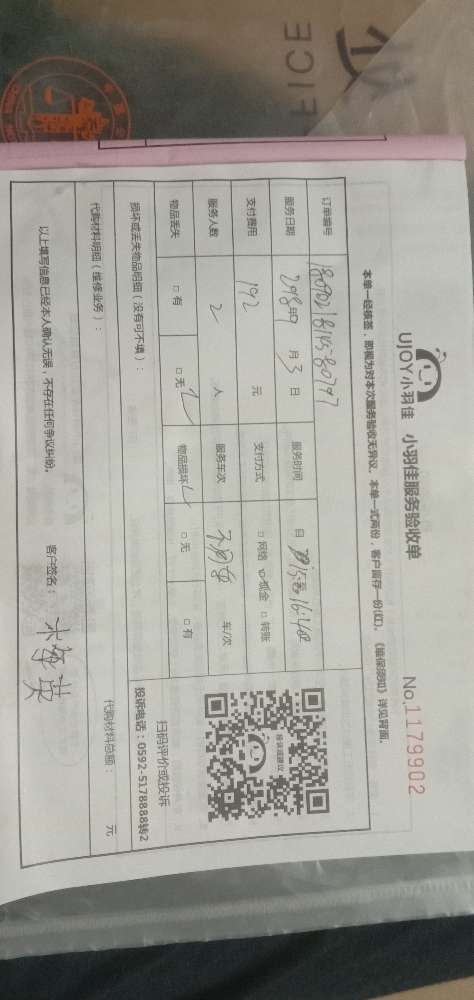 OFFICE
UJOY小羽佳 小羽佳服务验收单
No.1179902
本单一经核签，即视为对本次服务验收无异议。本单一式两份，客户留存一份(红)。《验保须知》详见背面。
订单编号
服务日期 9月3日 服务时间 日
支付费用 192 元 支付方式 □网络 □现金 □转账
服务人数 2 人 服务车次 车/次
物品丢失 □有 □无 物品损坏 □无 □有
扫码评价或投诉
损坏或丢失物品明细（没有可不填）：
投诉电话：0592-5178888转2
代购材料明细（维修业务）：
代购材料总额： 元
以上填写信息已经本人确认无误，不存在任何争议纠纷。 客户签名：